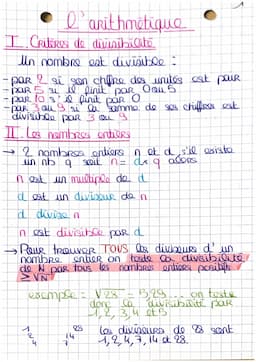 1
l'arithmétique
I Critères de divisibilité
Un nombre est divisible :
- par 2 si son chiffre des unités est pair
- par 5 si il finit par 0 ou 5
- par 10 s'il finit par 0
- par 3 ou 9 si la somme de ses chiffres est
divisible par 3 ou 9
II Les nombres entiers
→ 2 nombres entiers n et d, s'il existe
un nb q soit n = d × q alors
n est un multiple de d
d est un diviseur de n
d divise n
n est divisible par d
→ Pour trouver TOUS les diviseurs d'un
nombre entier on teste la divisibilité
de N par tous les nombres entiers positifs
≥ √N
exemple : √28 = 5,29... on teste
donc la divisibilité par
1, 2, 3, 4 et 5
1 28
2 14
4 7
les diviseurs de 28 sont
1, 2, 4, 7, 14 et 28.